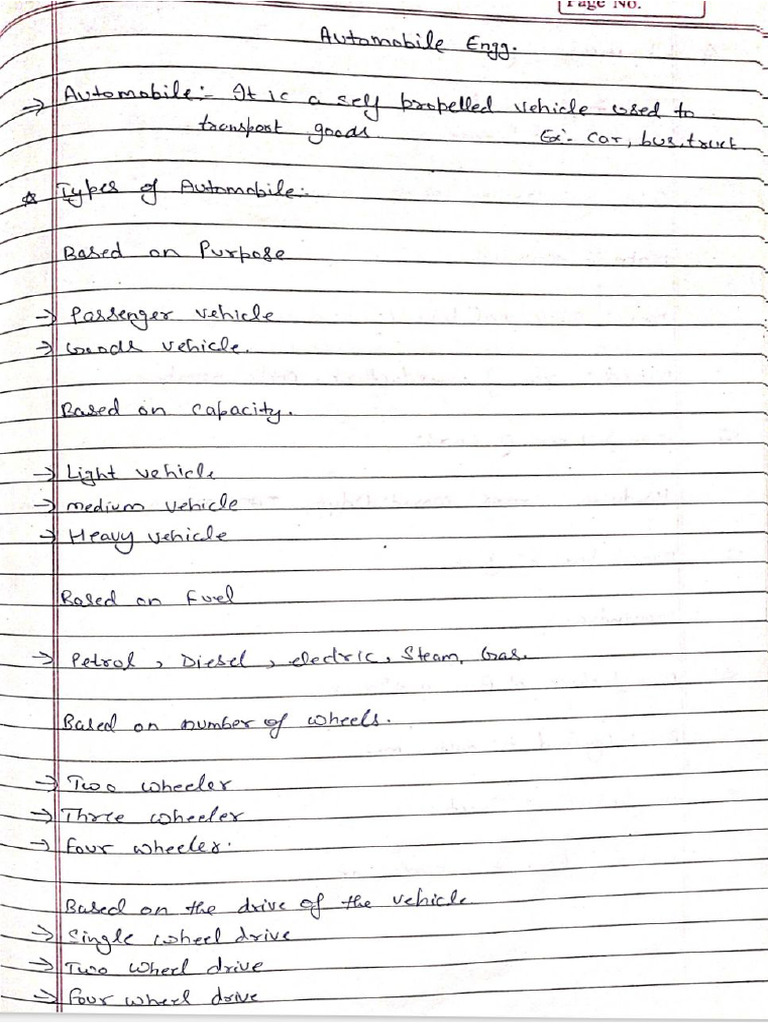 Page No.
Automobile Engg.
→ Automobile:- It is a self propelled vehicle used to
transport goods Ex:- car, bus, truck
☆ Types of Automobile:-
Based on Purpose
→ Passenger vehicle
→ Goods vehicle.
Based on capacity.
→ Light vehicle
→ medium vehicle
→ Heavy vehicle
Based on fuel
→ Petrol, Diesel, electric, Steam, Gas.
Based on number of wheels.
→ Two wheeler
→ Three wheeler
→ four wheeler.
Based on the drive of the vehicle
→ Single wheel drive
→ Two wheel drive
→ four wheel drive